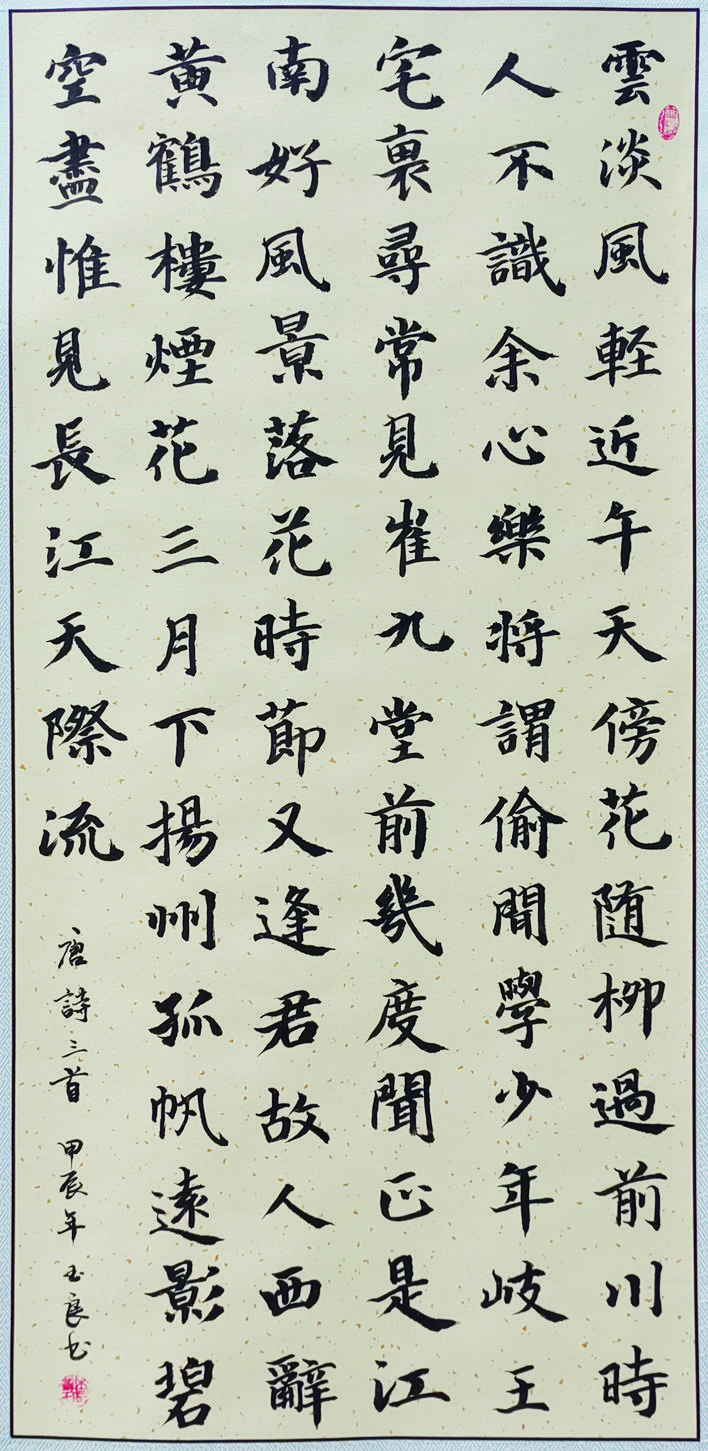 雲淡風軽近午天傍花随柳過前川時
人不識余心樂将謂偷閒學少年岐王
宅裏尋常見崔九堂前幾度聞正是江
南好風景落花時節又逢君故人西辭
黃鶴樓煙花三月下揚州孤帆遠影碧
空盡惟見長江天際流
唐詩三首 甲辰年 玉良书